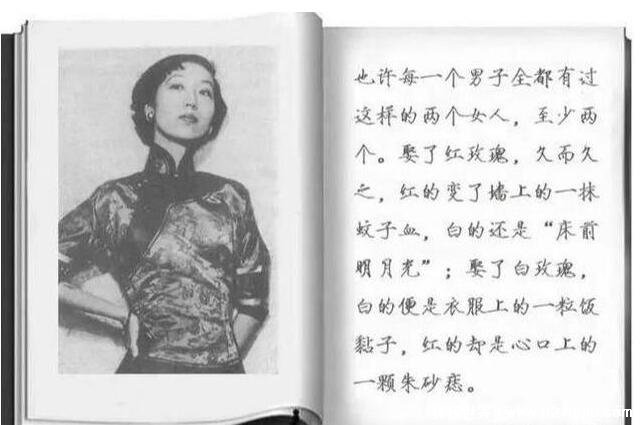 也许每一个男子全都有过
这样的两个女人，至少两
个。娶了红玫瑰，久而久
之，红的变了墙上的一抹
蚊子血，白的还是“床前
明月光”；娶了白玫瑰，
白的便是衣服上的一粒饭
黏子，红的却是心口上的
一颗朱砂痣。